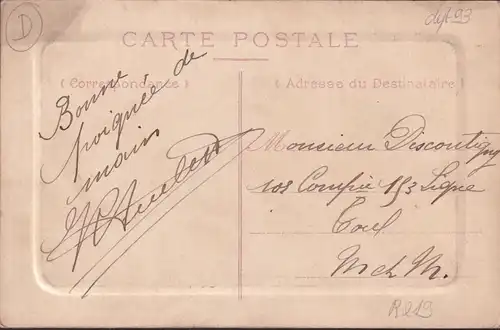 D
dept 93
CARTE POSTALE
( Correspondance )
( Adresse du Destinataire )
Bonne
poignée de
main
Monsieur Discontigny
10e Compie 153 Ligne
Toul
M et M.